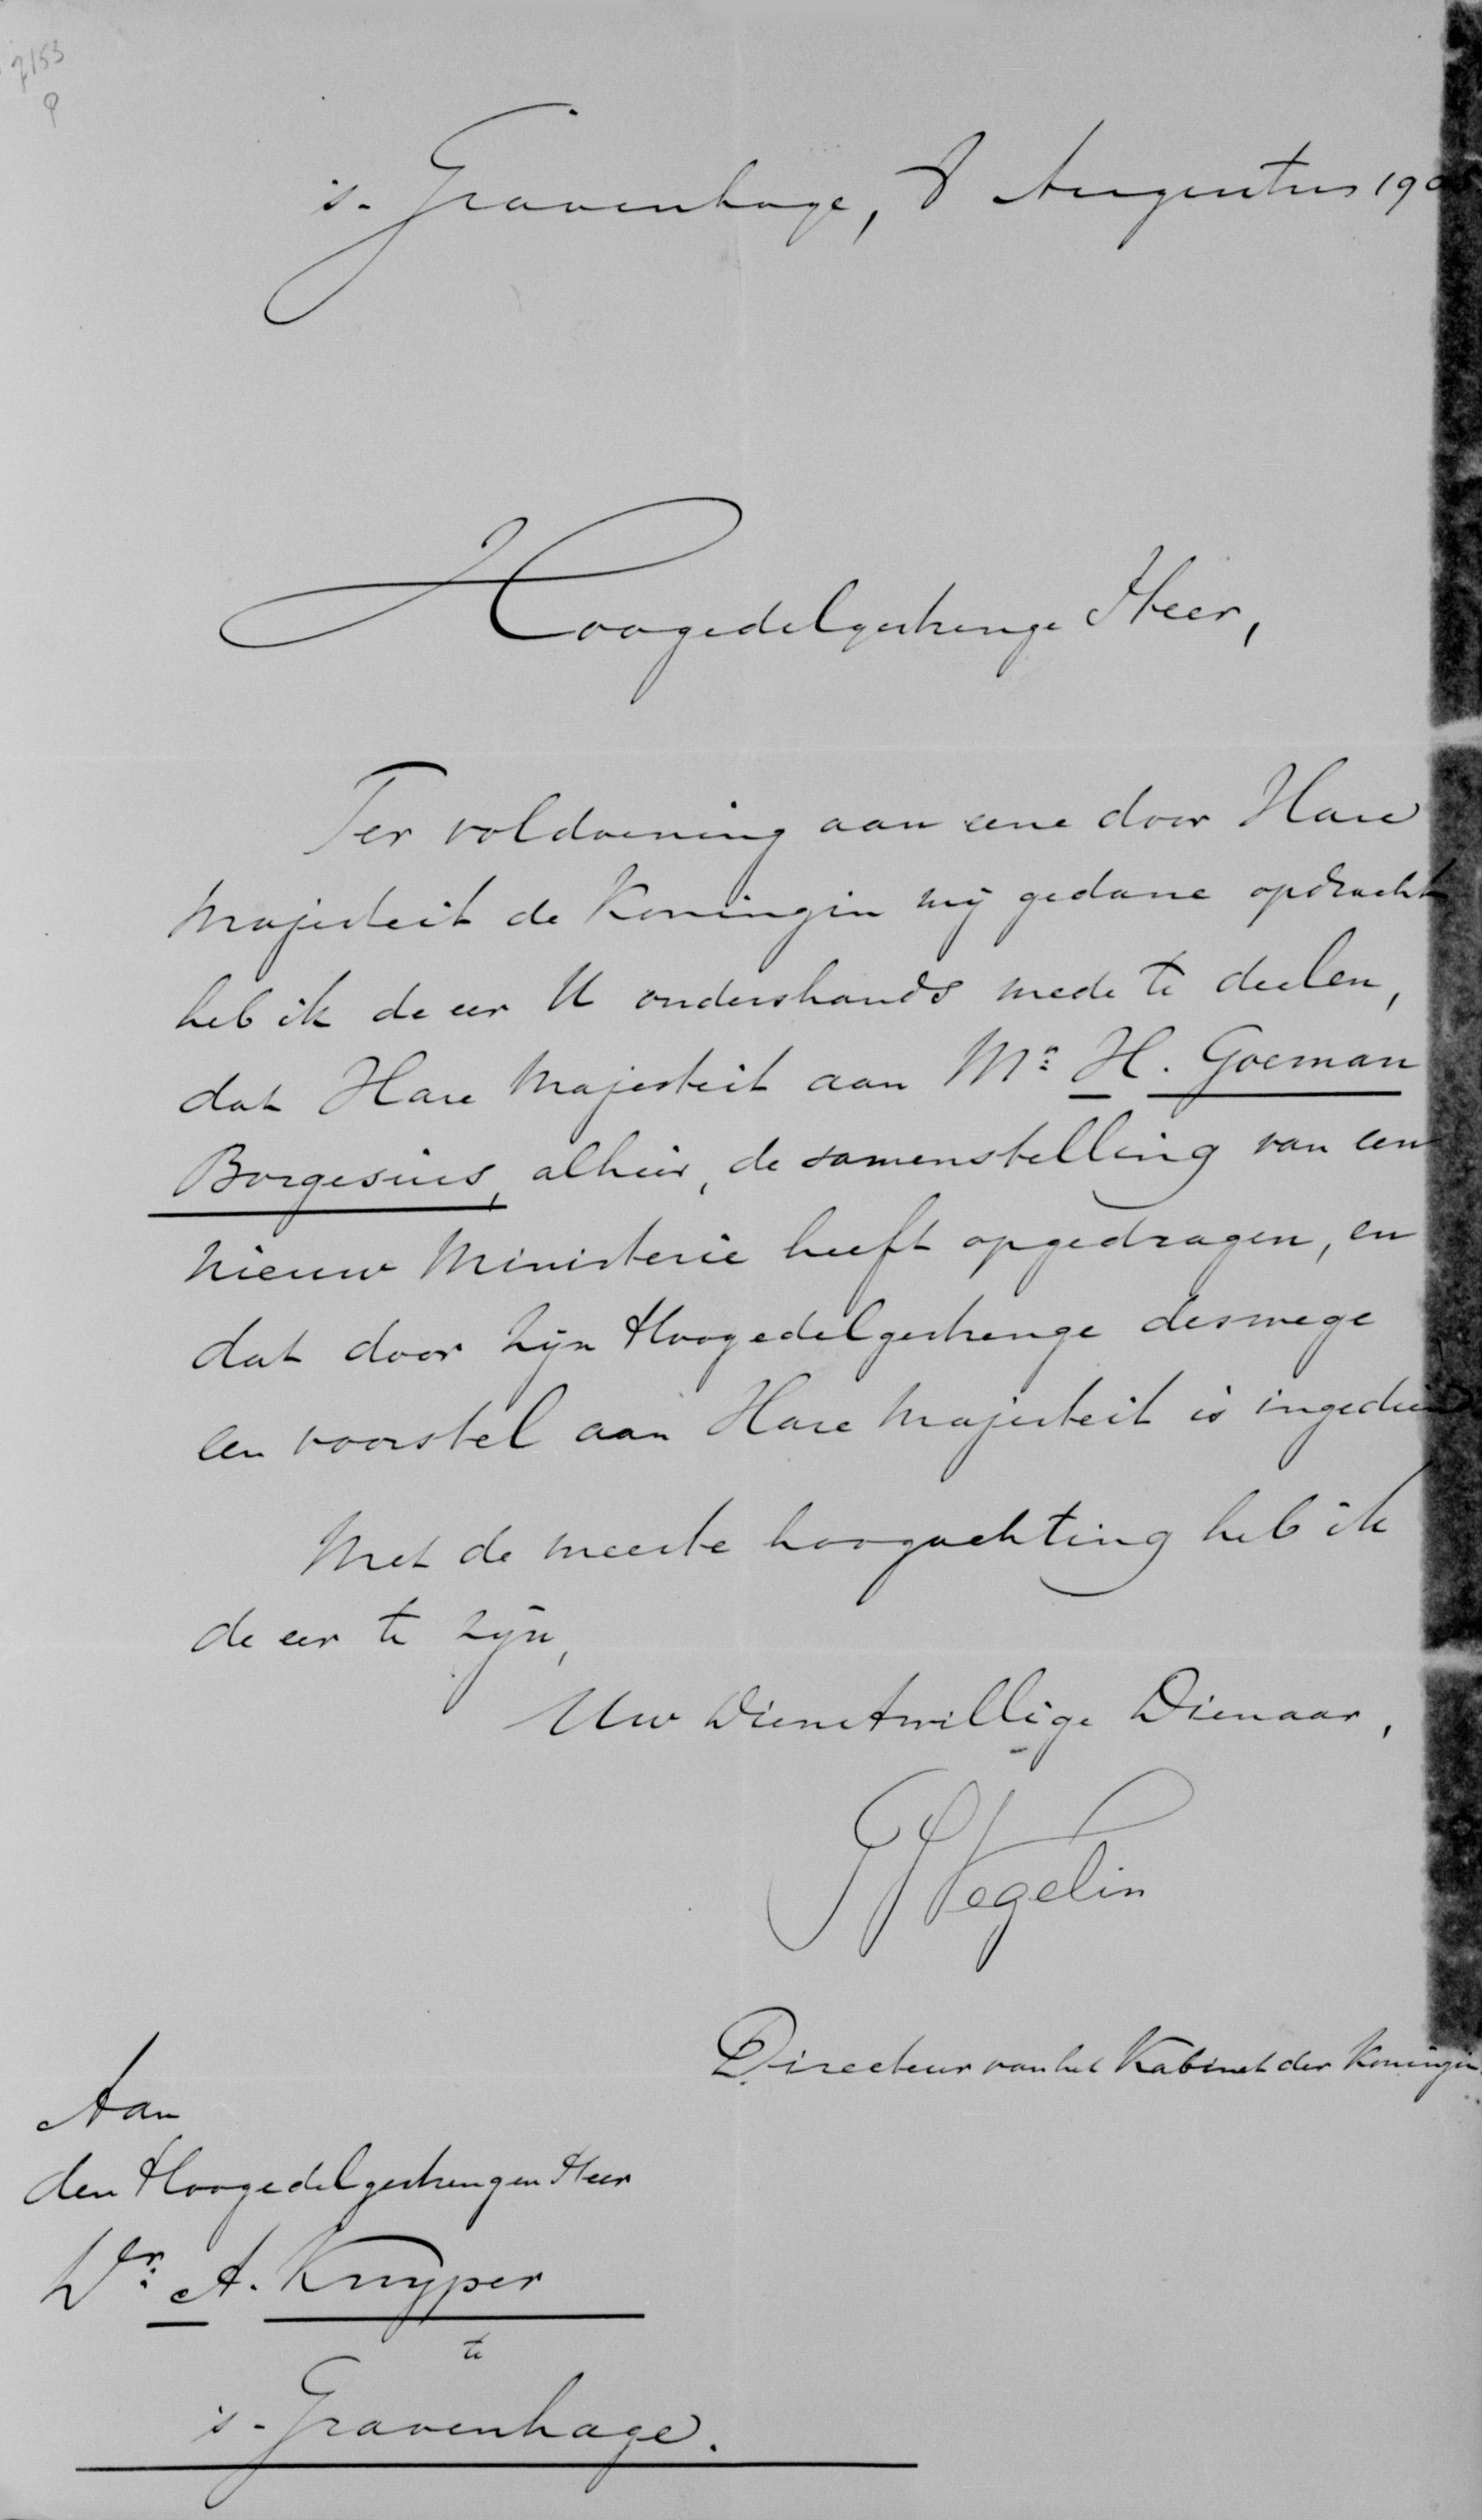 7153
's-Gravenhage, 8 Augustus 190
Hoogedelgestrenge Heer,
Ter voldoening aan eene door Hare
Majesteit de Koningin mij gedane opdracht
heb ik de eer U ondershands mede te deelen,
dat Hare Majesteit aan Mr. H. Goeman
Borgesius, alhier, de samenstelling van een
nieuw Ministerie heeft opgedragen, en
dat door Zijn Hoogedelgestrenge deswege
een voorstel aan Hare Majesteit is ingediend
Met de meeste hoogachting heb ik
de eer te zijn,
Uw Dienstwillige Dienaar,
Vegelin
Directeur van het Kabinet der Koningin.
Aan
den Hoogedelgestrengen Heer
Dr. A. Kuyper
te
's-Gravenhage.